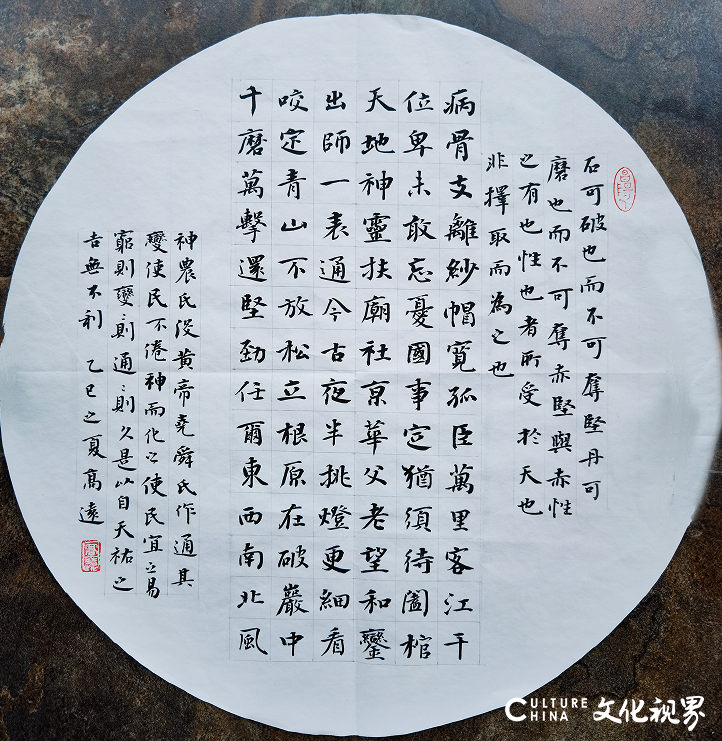 石可破也而不可奪堅丹可
磨也而不可奪赤堅與赤性
之有也性也者所受於天也
非擇取而為之也
病骨支離紗帽寬孤臣萬里客江干
位卑未敢忘憂國事定猶須待闔棺
天地神靈扶廟社京華父老望和鑾
出師一表通今古夜半挑燈更細看
咬定青山不放松立根原在破巖中
千磨萬擊還堅勁任爾東西南北風
神農氏没黄帝堯舜氏作通其
變使民不倦神而化之使民宜之易
窮則變〻則通〻則久是以自天祐之
吉無不利 乙巳之夏高遠
CULTURE CHINA 文化视界